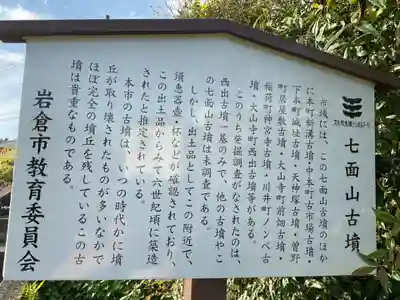 七面山古墳
市域には、この七面山古墳のほか
に本町新溝古墳・中本町古市場古墳・
下本町城址古墳・天神塚古墳・曽野
町居屋敷古墳・大山寺町前畑古墳・
稲荷町神宮寺古墳・川井町ノンベ古
墳・大山寺町西出古墳等がある。
このうち発掘調査がなされたのは、
西出古墳一基のみで、他の古墳やこ
の七面山古墳は未調査である。
しかし、出土品としてこの附近で、
須恵器壺・杯などが確認されており、
この出土品からみて六世紀頃に築造
されたと推定されている。
本市の古墳は、いつの時代かに墳
丘が取り壊されたものが多いなかで
ほぼ完全の墳丘を残しているこの古
墳は貴重なものである。
岩倉市教育委員会